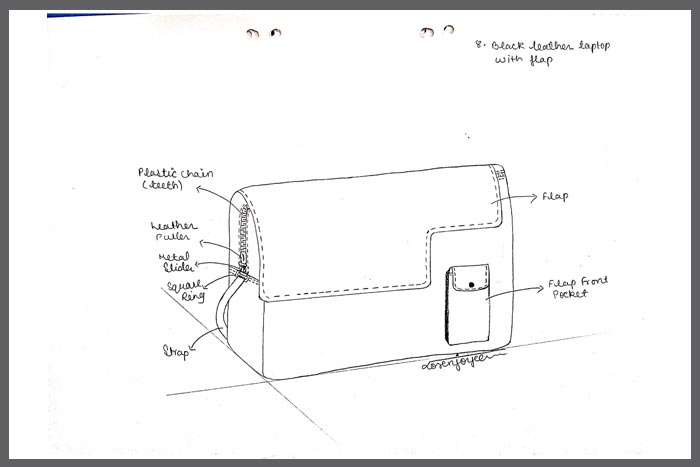 8. Black leather laptop
with flap
Plastic chain
(teeth)
Leather
Puller
Metal
Slider
Square
Ring
Strap
Flap
Flap Front
Pocket